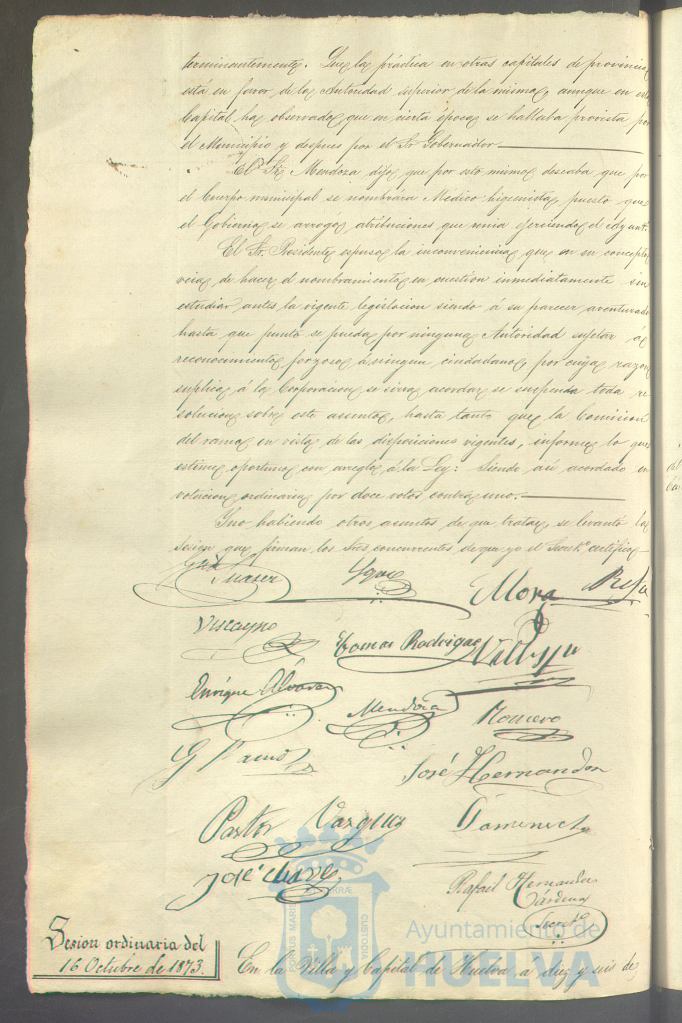 terminantemente. Que la práctica en otras capitales de provincia
está en favor de la Autoridad superior de la misma, aunque en esta
Capital ha observado que en cierta época se hallaba provista por
el Municipio y despues por el Sr Gobernador.
El Sr. Mendoza dijo que por esto mismo deseaba que por
el Cuerpo municipal se nombrára Médico-higienista, puesto que
el Gobierno se arroga atribuciones que venia ejerciendo el Ayunt.
El Sr. Presidente expuso la inconveniencia que en su concepto
veia de hacer el nombramiento en cuestion inmediatamente sin
estudiar antes la vigente legislacion siendo á su parecer aventurado
hasta que punto se pueda por ninguna Autoridad sujetar á
reconocimiento forzoso á ningun ciudadano, por cuya razon
suplica á la Corporacion se sirva acordar se suspenda toda re
solucion sobre este asunto, hasta tanto que la Comision
del ramo en vista de las disposiciones vigentes, informe lo que
estime oportuno con arreglo á la Ley: Siendo asi acordado en
votacion ordinaria por doce votos contra uno.
Y no habiendo otros asuntos de que tratar se levantó la
Sesion que firman los Sres concurrentes de que yo el Secretº certifico
Suarez Mora
Viscayno Tomas Rodriguez
Enrique Alvarez Mendoza Romero
José Hernandez
Pastor Vazquez Domenech
José Chaves Rafael Hernandez
Cárdenas
Secretº
Sesion ordinaria del
16 Octubre de 1873.
En la Villa y Capital de Huelva a diez y seis de
PORTUS MARIS ET TERRÆ CUSTODIA
Ayuntamiento de
HUELVA